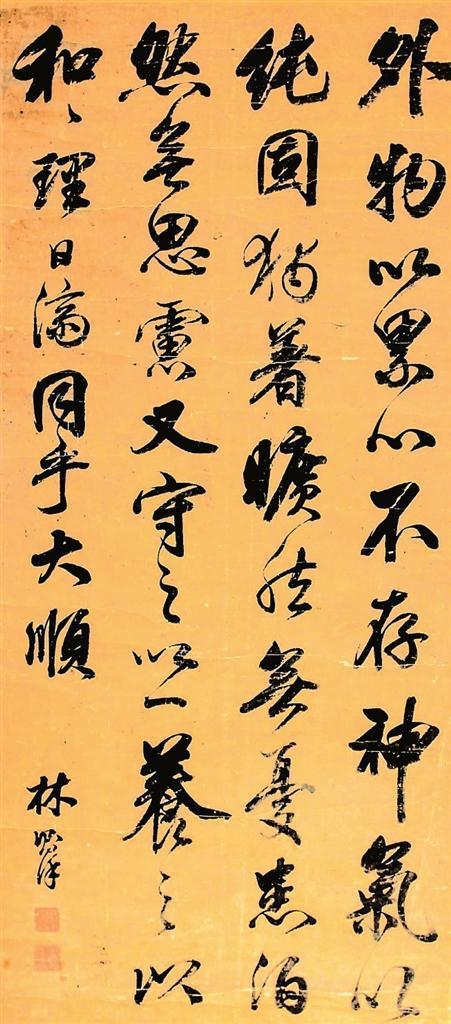 外物以累心不存神氣以
純固獨著曠然無憂患泊
然無思慮又守之以一養之以
和〻理日濟同乎大順
林